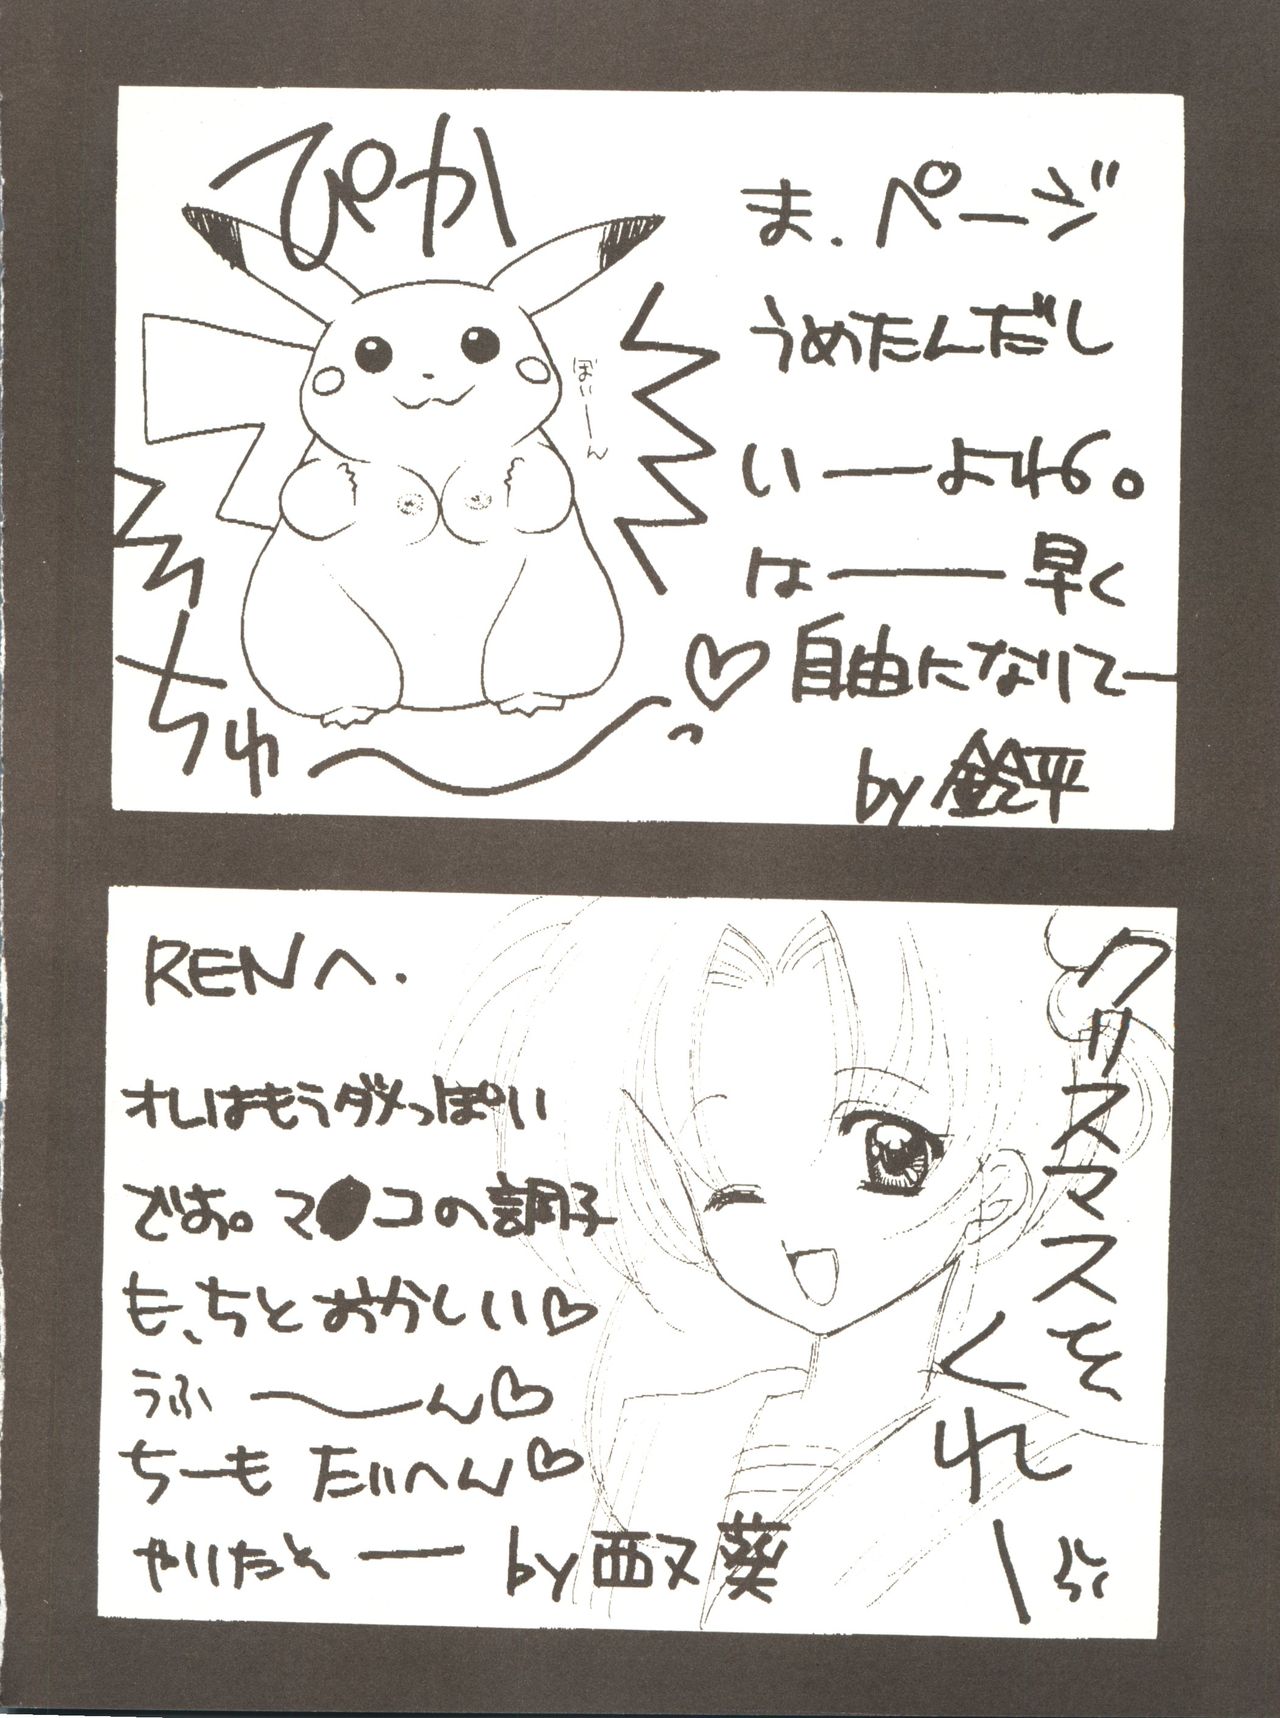 ぴか
ま、ページ
うめたんだし
い──よね。
は───早く
♡自由になりてー
by 鈴平
ぼいーん
ちゅ
RENへ.
オレはもうダメっぽい
です。マ●コの調子
も、ちとおかしい♡
うふ〜ん♡
ちーも たいへん♡
やりたい──
クリスマスを
くれー